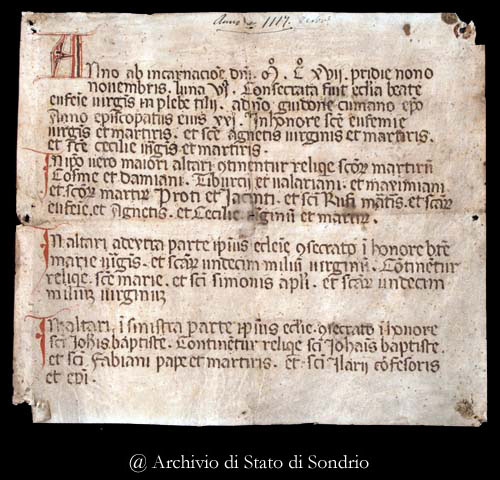 Anno 1117.
ANno ab incarnaciõe dñi. M̊. C̊ XVij. pridie nono
novembris. luna Vj. Consecrata sunt ecl̃ia beate
eufeie virgis in plebe tilij. a dño guidone cumano epõ
Anno episcopatus eius XXj. In honore sce eufemie
virgis et martiris. et sce agnetis virginis et martiris.
et sce cecilie virgis et martiris.
In ipõ vero maiori altari 9tinentur reliqe scõr martirũ
Cosme et damiani. Tiburcii et valariani. et maximiani
et scõr martir Proti et Jacinti. et sci Rufi matis. et scar
eufeie. et Agnetis. et Cecilie virginũ et martir.
In altari a dextra parte ipius eclesie 9secrato i honore bte
marie virgis. et scar undecim milium virginũ. Continẽtur
reliqe. sce marie. et sci simonis apli. et scar undecim
milium virginũ
In altari i sinistra parte ipius eclie. 9secrato i honore
sci Johis baptiste. Continẽtur reliqe sci Johãis baptiste.
et sci Fabiani pape et martiris. et sci Ilarii cõfesoris
et epi.
@ Archivio di Stato di Sondrio